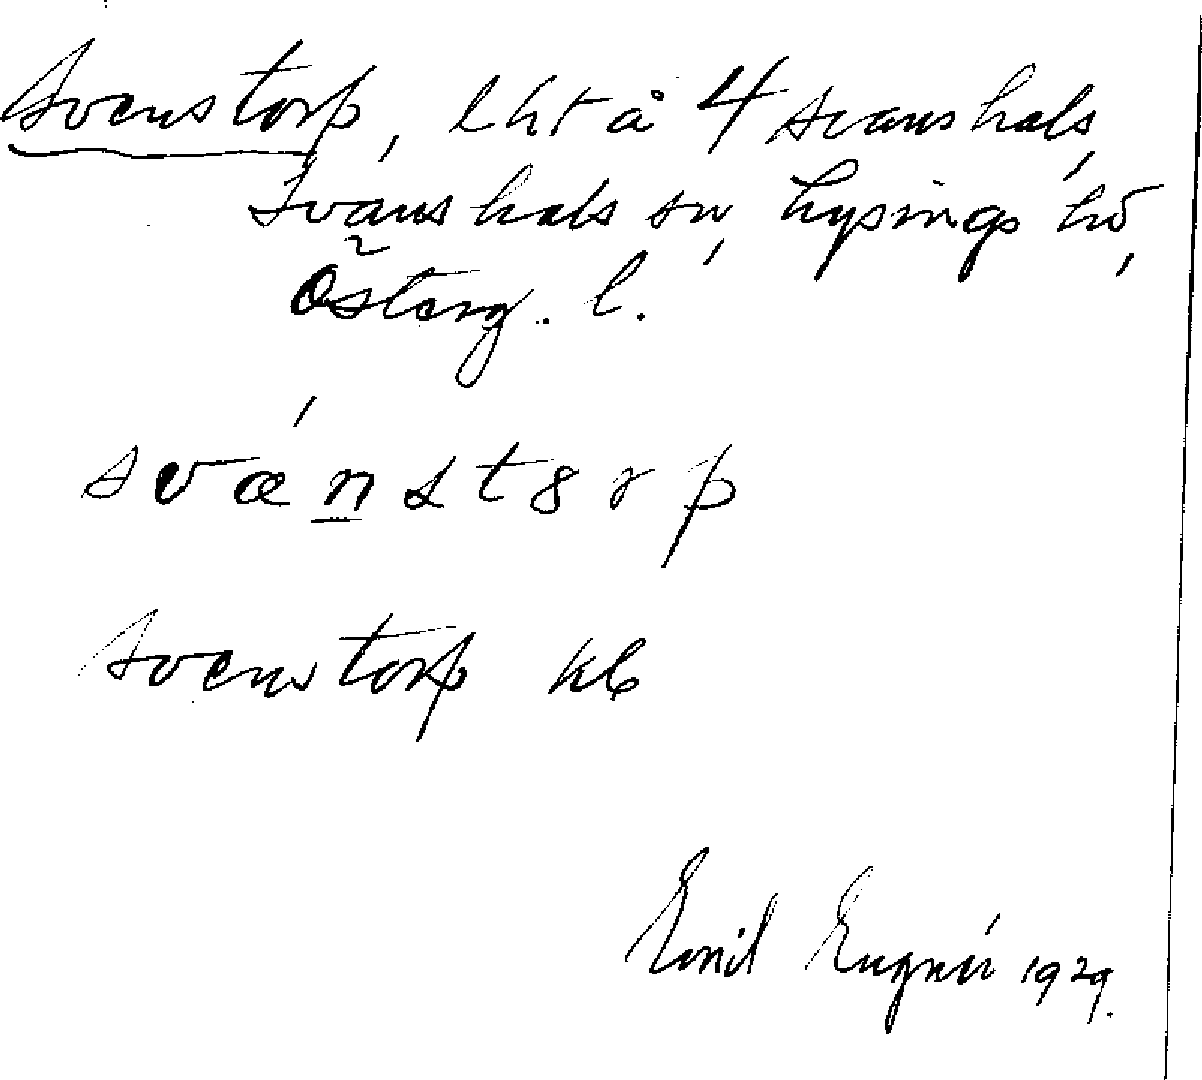 Svenstorp, lht å 4 Svanshals,
Svanshals sn, Lysings hd,
Österg. l.
svæ´nst8rp
Svenstorp kb
Emil Engnér 1929.